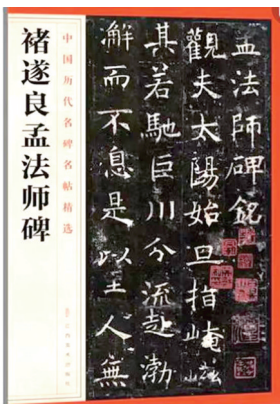 中国历代名碑名帖精选
褚遂良孟法师碑
孟法師碑銘
觀夫太陽始旦指崦嵫
其若馳巨川分流趍渤
澥而不息是以至人無